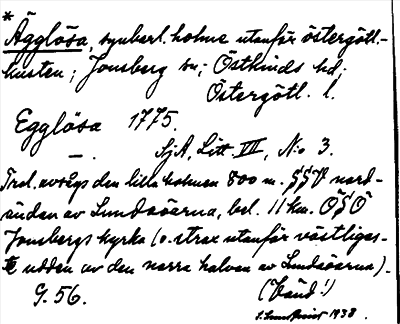 *
Ägglösa, synbarl. holme utanför östergötl.-
kusten; Jonsberg sn; Östkinds hd;
Östergötl. l.
Egglösa 1775.
—. SjA, Litt. VII, No 3.
Trol. avsågs den lilla holmen 800 m. SSV nord-
änden av Lundaöarna, bel. 11 km. OSO
Jonsbergs kyrka (o. strax utanför västligas-
te udden av den norra halvan av Lundaöarna).
G. 56. (Vänd!)
1938.